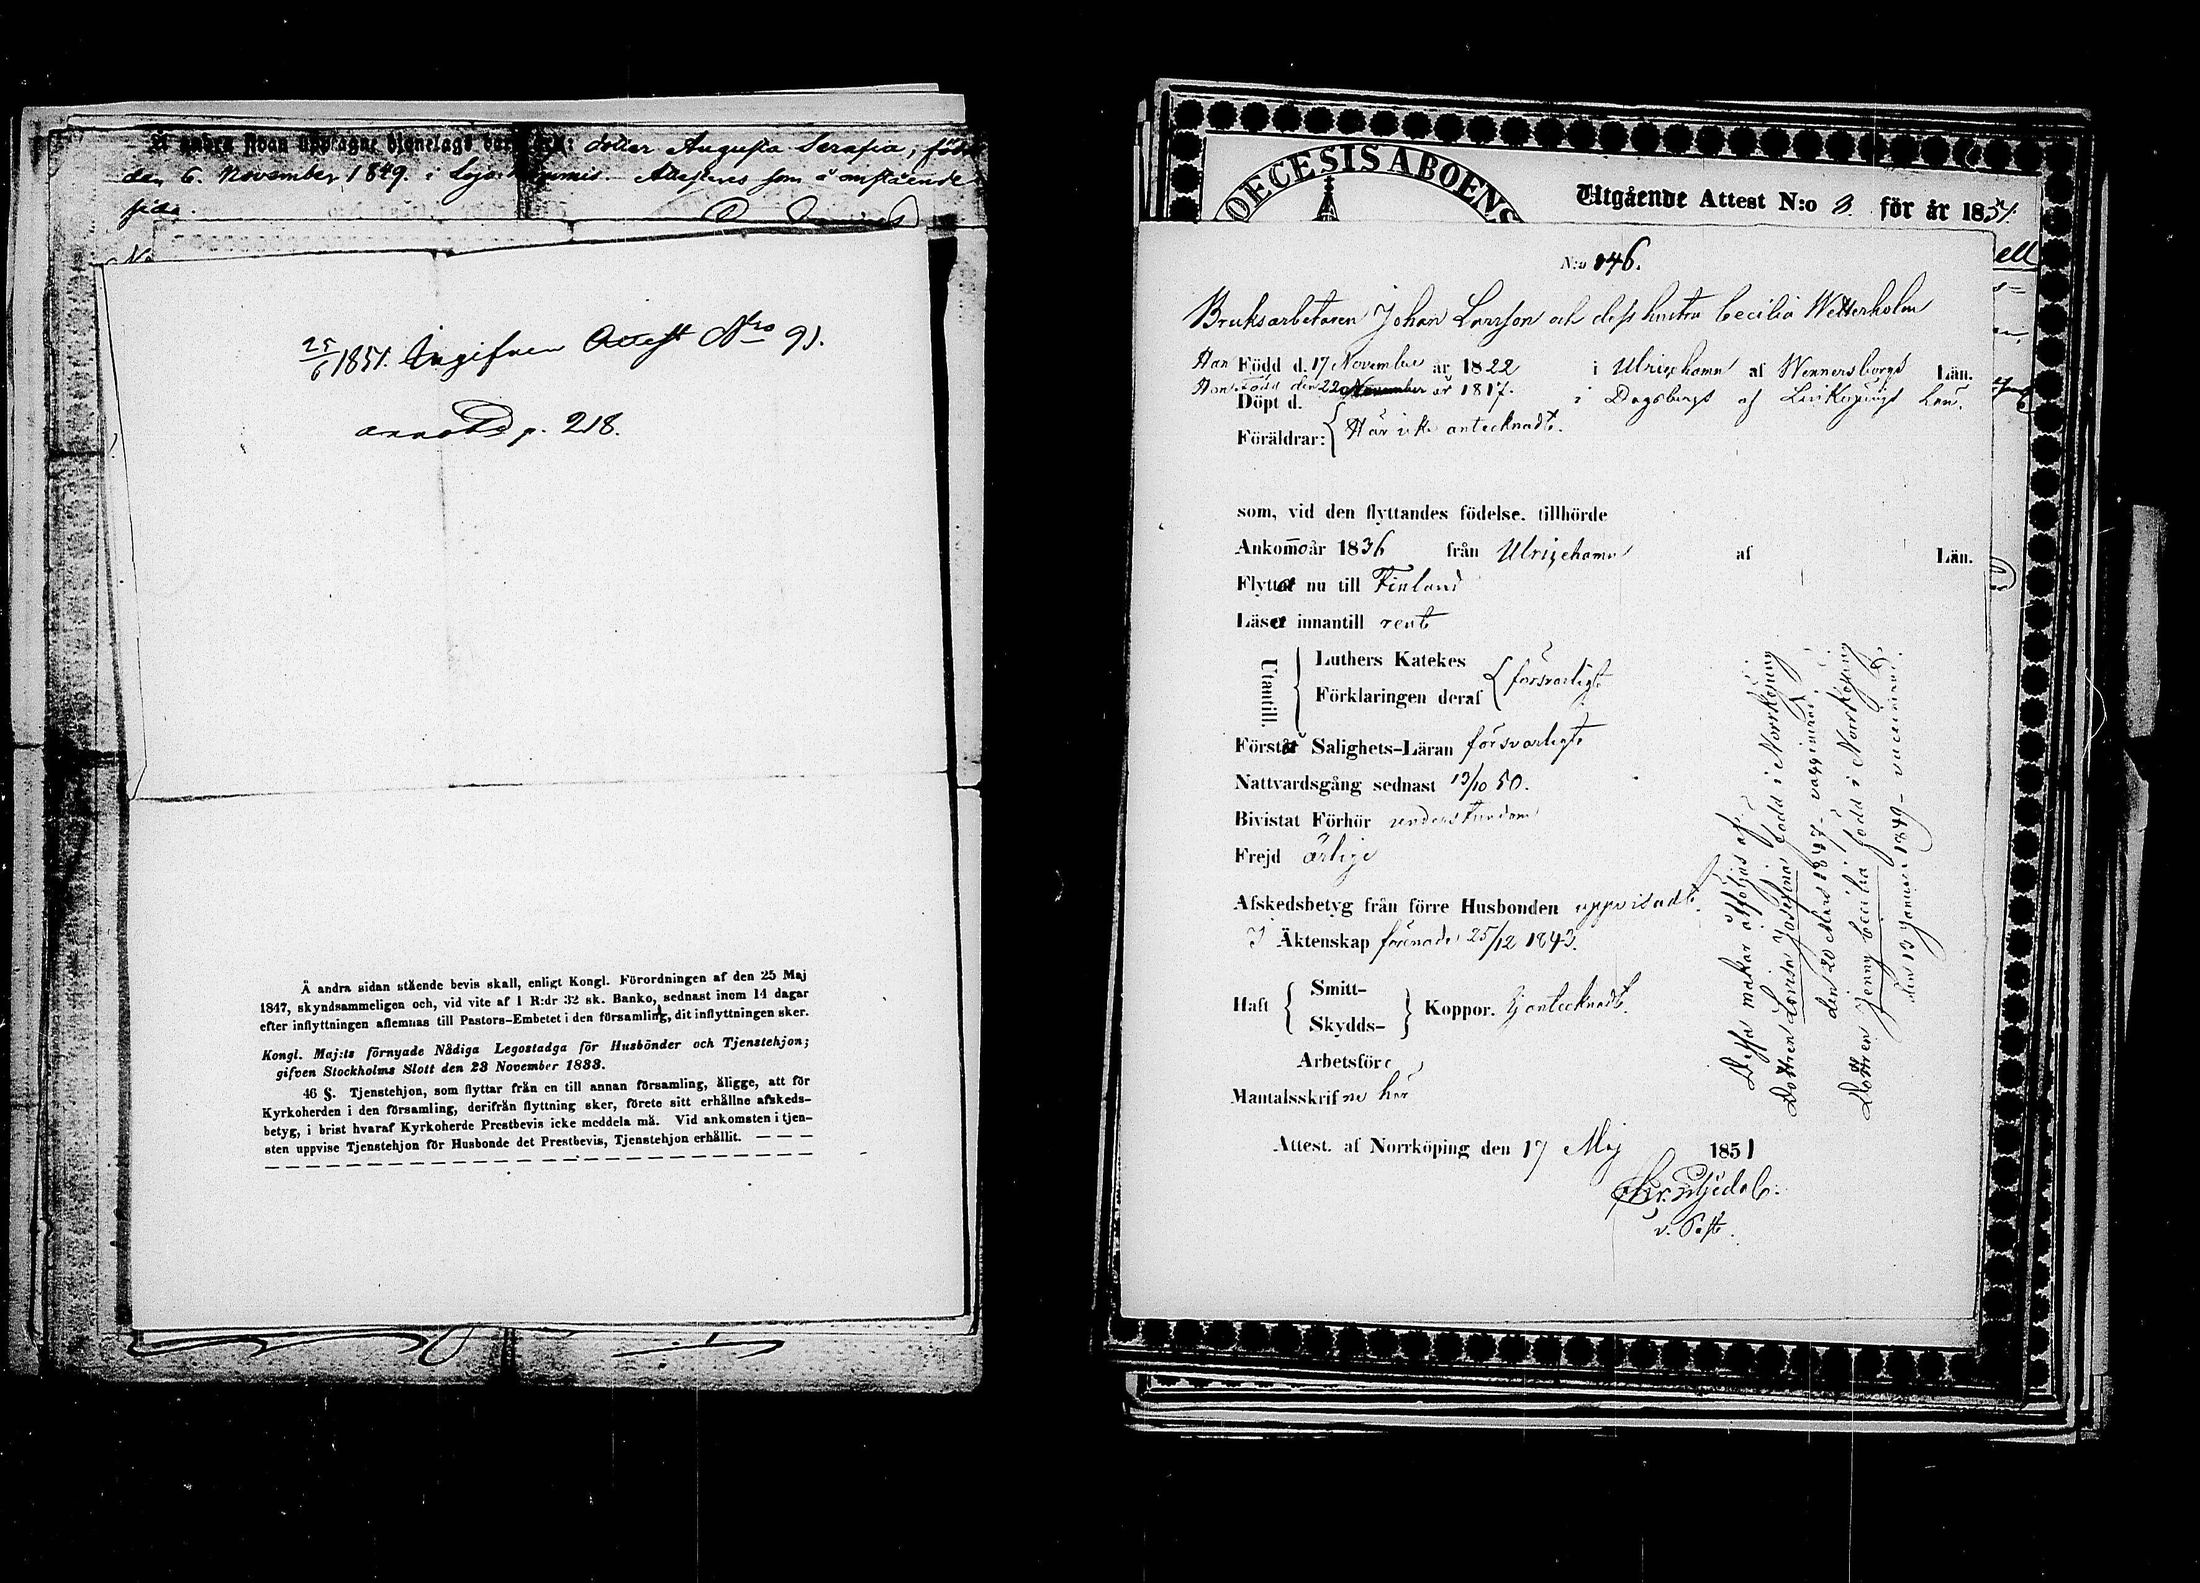 dotter Augusta Serafia, född
den 6. November 1849. i Lojo Attesteras som å omstående
sida.
25/6 1851. Ingifven Attest Nro 91.
annot p. 218.
Å andra sidan stående bevis skall, enligt Kongl. Förordningen af den 25 Maj
1847, skyndsammeligen och, vid vite af 1 R:dr 32 sk. Banko, sednast inom 14 dagar
efter inflyttningen aflemnas till Pastors-Embetet i den församling, dit inflyttningen sker.
Kongl. Maj:ts förnyade Nådiga Legostadga för Husbönder och Tjenstehjon;
gifven Stockholms Slott den 23 November 1833.
46 §. Tjenstehjon, som flyttar från en till annan församling, åligge, att för
Kyrkoherden i den församling, derifrån flyttning sker, förete sitt erhållne afskeds-
betyg, i brist hvaraf Kyrkoherde Prestbevis icke meddela må. Vid ankomsten i tjen-
sten uppvise Tjenstehjon för Husbonde det Prestbevis, Tjenstehjon erhållit. — — —
OECESIS ABOENS
Utgående Attest N:o 3. för år 1851.
ell
N:o 146.
Bruksarbetaren Johan Larsson och dess hustru Cecilia Wetterholm
Han Född d. 17 November år 1822 i Ulricehamn af Wennersborgs Län.
Hon Född den 22 November år 1817. i Dagsbergs af Linköpings Län.
Döpt d.
Föräldrar: { Här icke antecknadt.
som, vid den flyttandes födelse, tillhörde
Ankomo år 1836 från Ulricehamn af Län.
Flytta nu till Finland
Läsa innantill rent
Utantill. { Luthers Katekes
Förklaringen deraf { försvarligt
Förstå Salighets-Läran försvarligt
Nattvardsgång sednast 13/10 50.
Bivistat Förhör understundom
Frejd ärlige
Afskedsbetyg från förre Husbonden uppvisadt.
I Äktenskap förenade 25/12 1843.
Haft { Smitt-
Skydds- } Koppor. Ej antecknadt.
Arbetsföre
Mantalsskrifne här
Attest. af Norrköping den 17 Maj 1851
v. Past.
Dessa makar åtföljas af
Dottren Lovisa Josefina född i Norrköping
den 20 Mars 1847 - vaccinerad,
Dottren Jenny Cecilia född i Norrköping
den 13 Januari 1849 - vaccinerad.